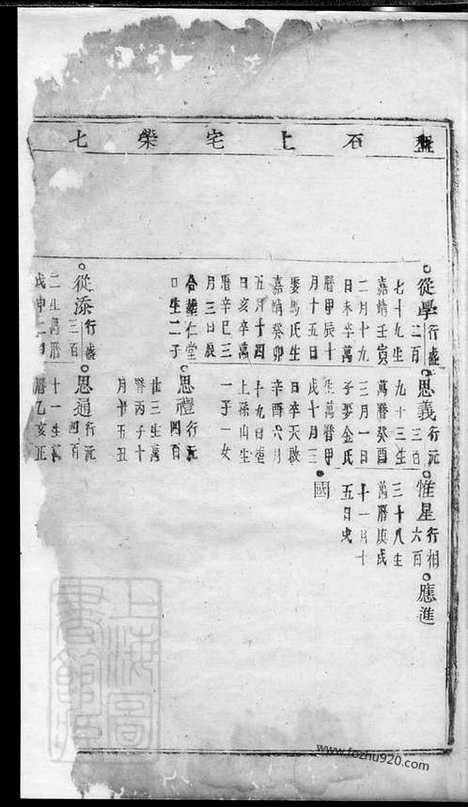 盤石上宅榮七
從學行盛二百
七十九生
嘉靖壬寅
二月十九
日未卒萬
曆甲辰十
月十五日
娶馬氏生
嘉靖癸卯
五月十四
日亥卒萬
曆辛巳三
月三日辰
合葬仁堂
生二子
思義行沅三百
九十三生
萬曆癸酉
三月一日
子娶金氏
生萬曆甲
戌十月三
日卒天啟
辛酉六月
十九日
上徐山生
一子一女
惟星行相六百
三十八生
萬曆庚戌
十一月十
五日戌
國
應進
思禮行沅四百
廿三生萬
曆丙子十
月廿五丑
從添行盛三百
二生萬曆
戊申二月
思通行沅四百
十一生萬
曆乙亥正
上海圖書館藏
www.fozhu920.com